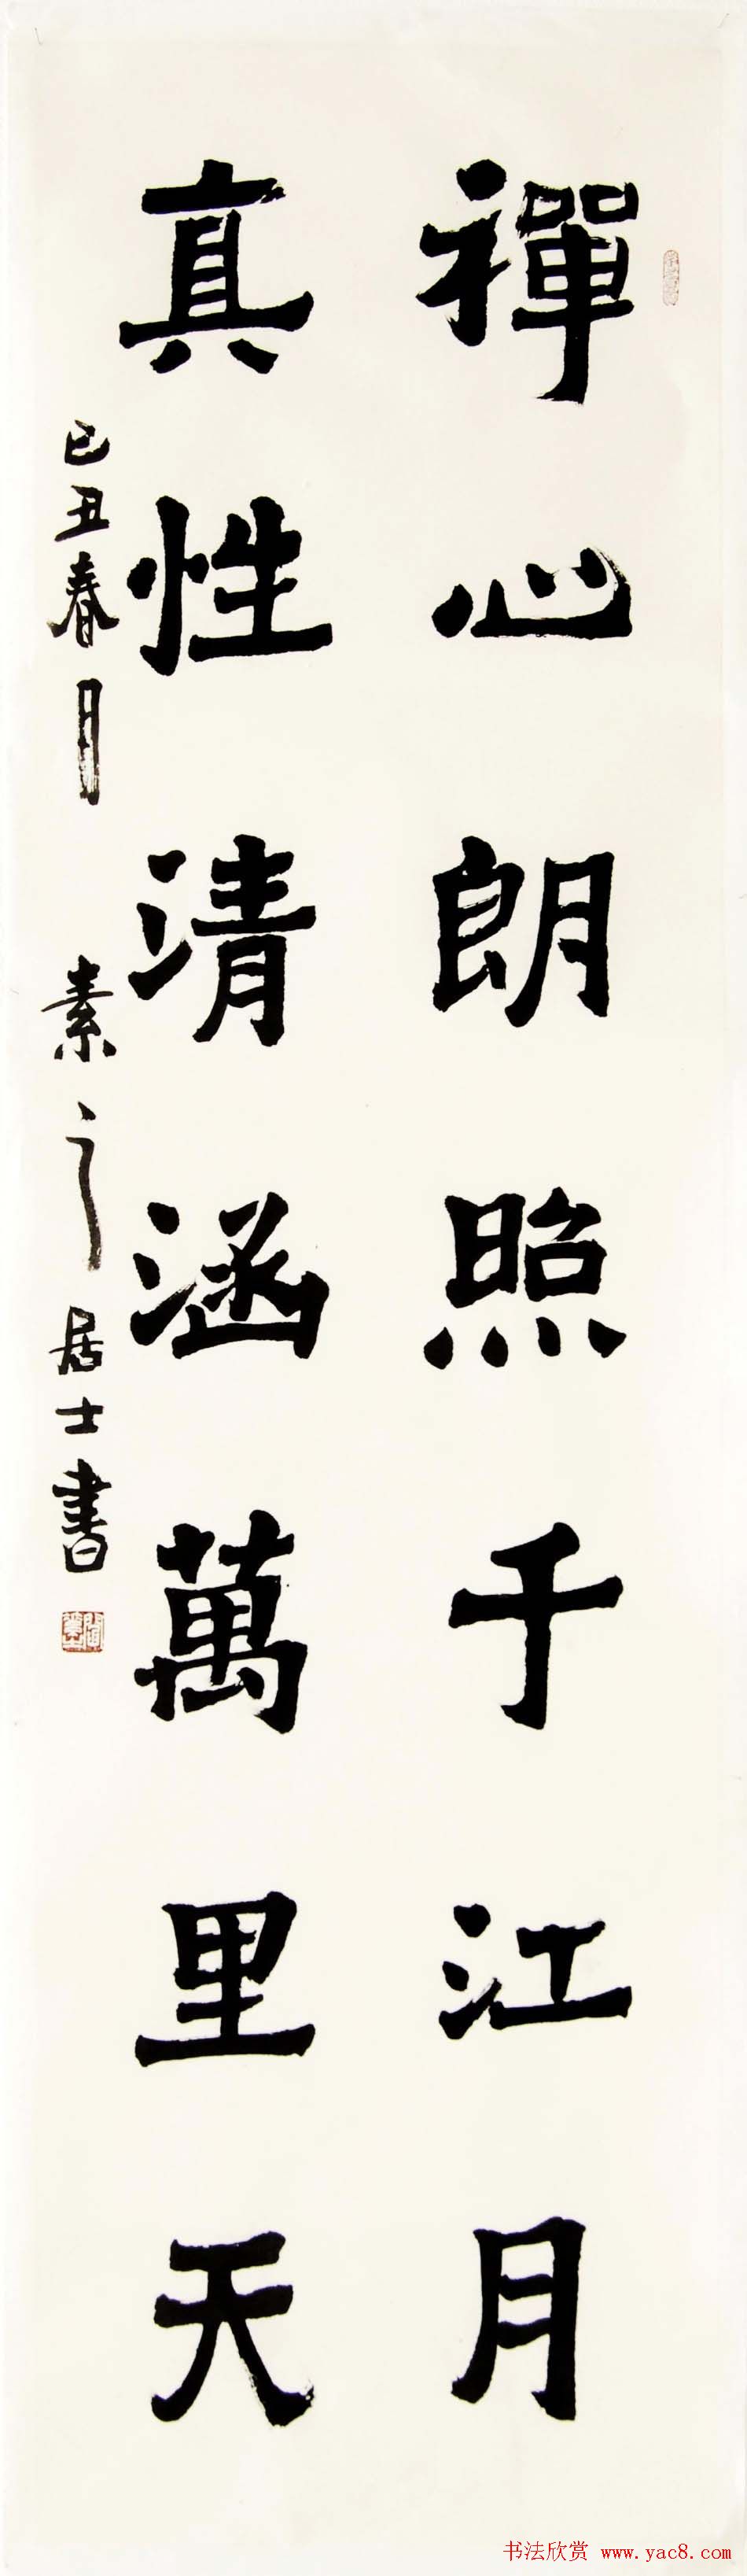 禪心朗照千江月
真性清涵萬里天
己丑春月 素之居士書
书法欣赏 www.yac8.com